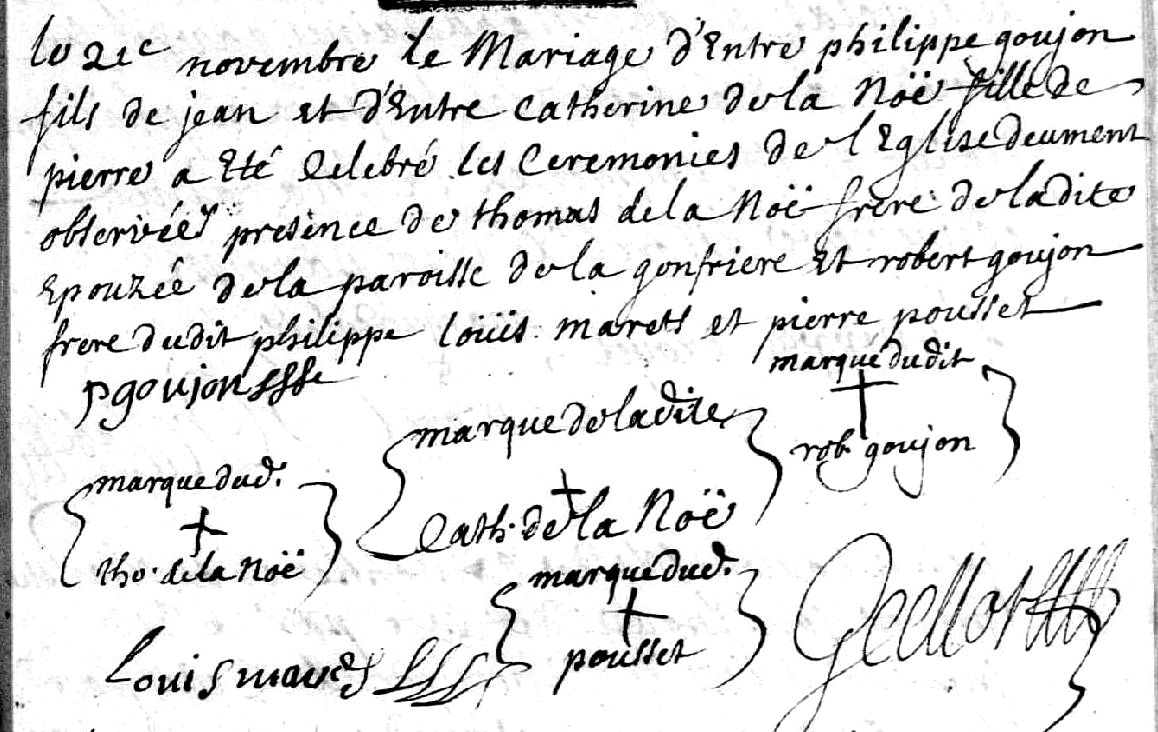 le 21e novembre le Mariage d'Entre philippe goujon
fils de jean et d'Entre Catherine de la Noë fille de
pierre a Eté Celebré les Ceremonies de l'Eglise deument
observéeś presence de thomas de la Noë frere de ladite
Epouzée de la paroisse de la gonfriere Et robert goujon
frere dudit philippe loüis marets et pierre pousset
marque dudit
pgoujon
rob. goujon
marque de ladite
Cath. de la Noë
marque dud.
tho. de la Noë
marque dud.
pousset
Louis marets